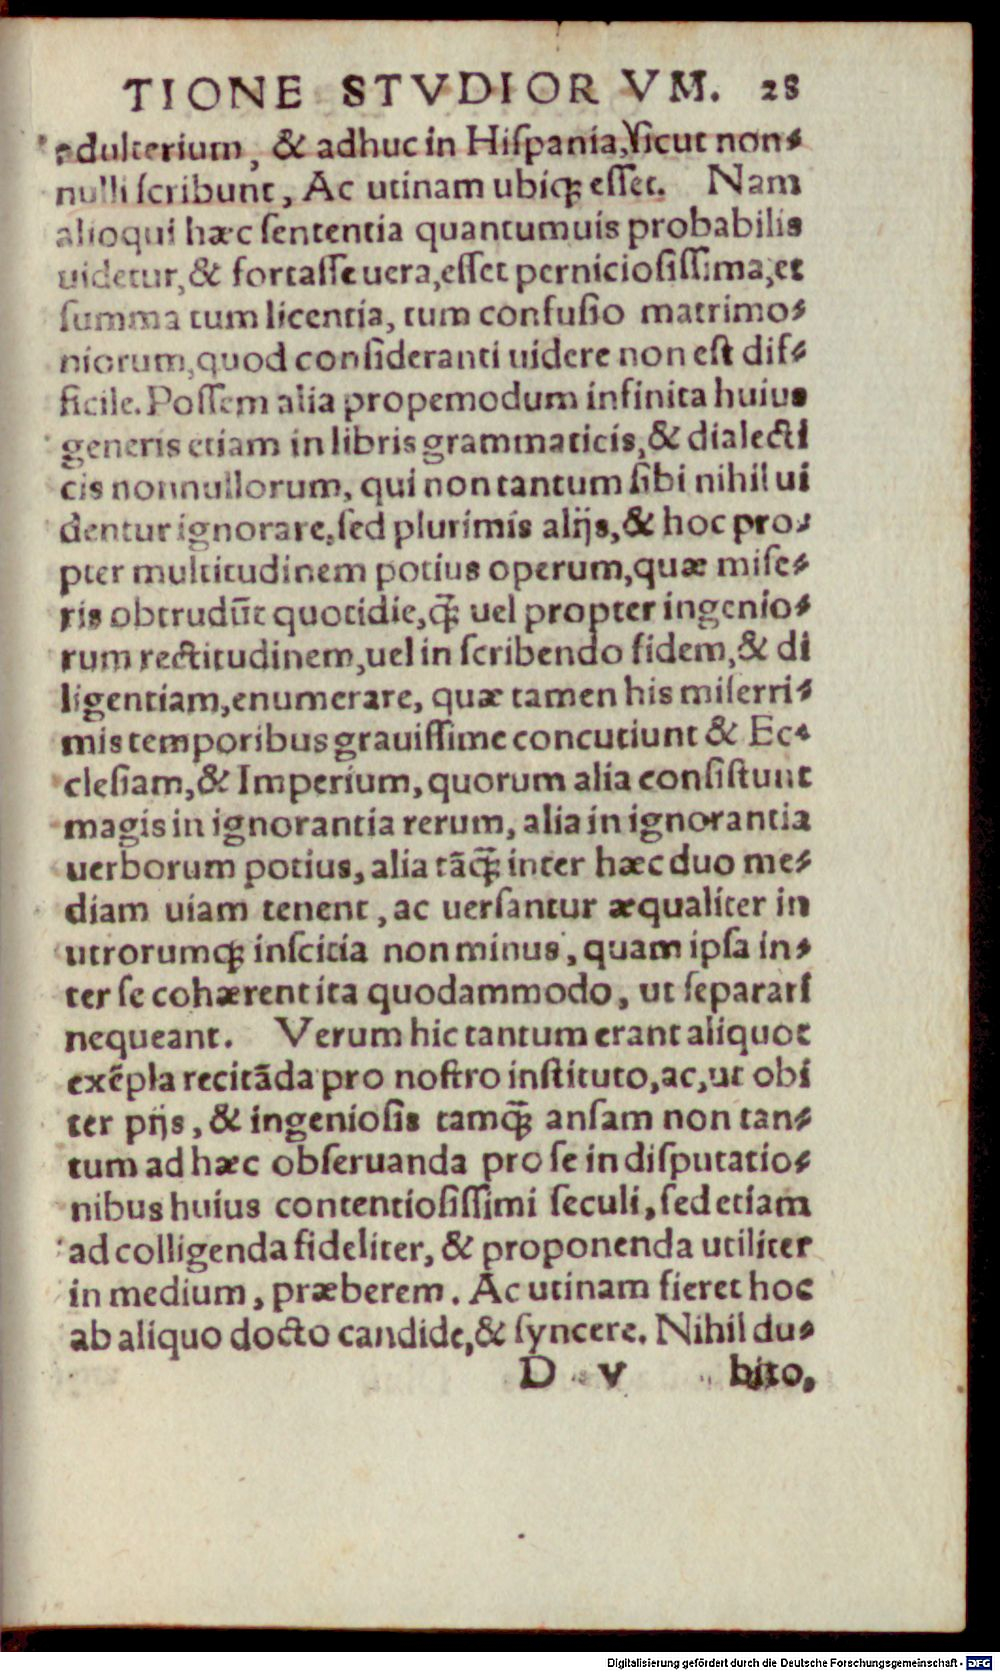 TIONE STVDIORVM. 28
adulterium, & adhuc in Hiſpania, ſicut non⸗
nulli ſcribunt, Ac utinam ubiqꝫ eſſet. Nam
alioqui hæc ſententia quantumuis probabilis
uidetur, & fortaſſe uera, eſſet pernicioſiſſima, et
ſumma tum licentia, tum confuſio matrimo⸗
niorum, quod conſideranti uidere non eſt dif⸗
ficile. Poſſem alia propemodum infinita huius
generis etiam in libris grammaticis, & dialecti
cis nonnullorum, qui non tantum ſibi nihil ui
dentur ignorare, ſed plurimis alijs, & hoc pro⸗
pter multitudinem potius operum, quæ miſe⸗
ris obtrudūt quotidie, q̄ꝫ uel propter ingenio⸗
rum rectitudinem, uel in ſcribendo fidem, & di
ligentiam, enumerare, quæ tamen his miſerri⸗
mis temporibus grauiſſime concutiunt & Ec⸗
cleſiam, & Imperium, quorum alia conſiſtunt
magis in ignorantia rerum, alia in ignorantia
uerborum potius, alia tāq̄ꝫ inter hæc duo me⸗
diam uiam tenent, ac uerſantur æqualiter in
utrorumqꝫ inſcitia non minus, quam ipſa in⸗
ter ſe cohærent ita quodammodo, ut ſeparari
nequeant. Verum hic tantum erant aliquot
exēpla recitāda pro noſtro inſtituto, ac, ut obi
ter pijs, & ingenioſis tamq̄ꝫ anſam non tan⸗
tum ad hæc obſeruanda pro ſe in diſputatio⸗
nibus huius contentioſiſſimi ſeculi, ſed etiam
ad colligenda fideliter, & proponenda utiliter
in medium, præberem. Ac utinam fieret hoc
ab aliquo docto candide, & ſyncere. Nihil du⸗
D v bito,
Digitalisierung gefördert durch die Deutsche Forschungsgemeinschaft - DFG